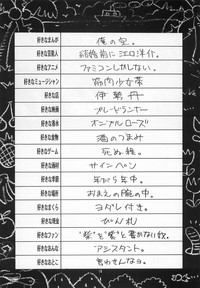 好きなまんが 俺の空。
好きな芸能人 結婚前に江口洋介。
好きなアニメ ファミコンしかしない。
好きなミュージシャン 筋肉少女帯
好きな店 伊勢丹
好きな映画 ブレードランナー
好きな香水 オニブルローズ
好きな食物 酒のつまみ
好きなゲーム 死ぬ程。
好きな画材 サインペン
好きな季節 年がら年中。
好きな場所 おまえの腕の中。
好きなまくら ヨダレ付き。
好きな現金 ぴん札
好きなファン "柴"を"紫"と書かない奴。
好きなおんな アシスタント。
好きなおとこ